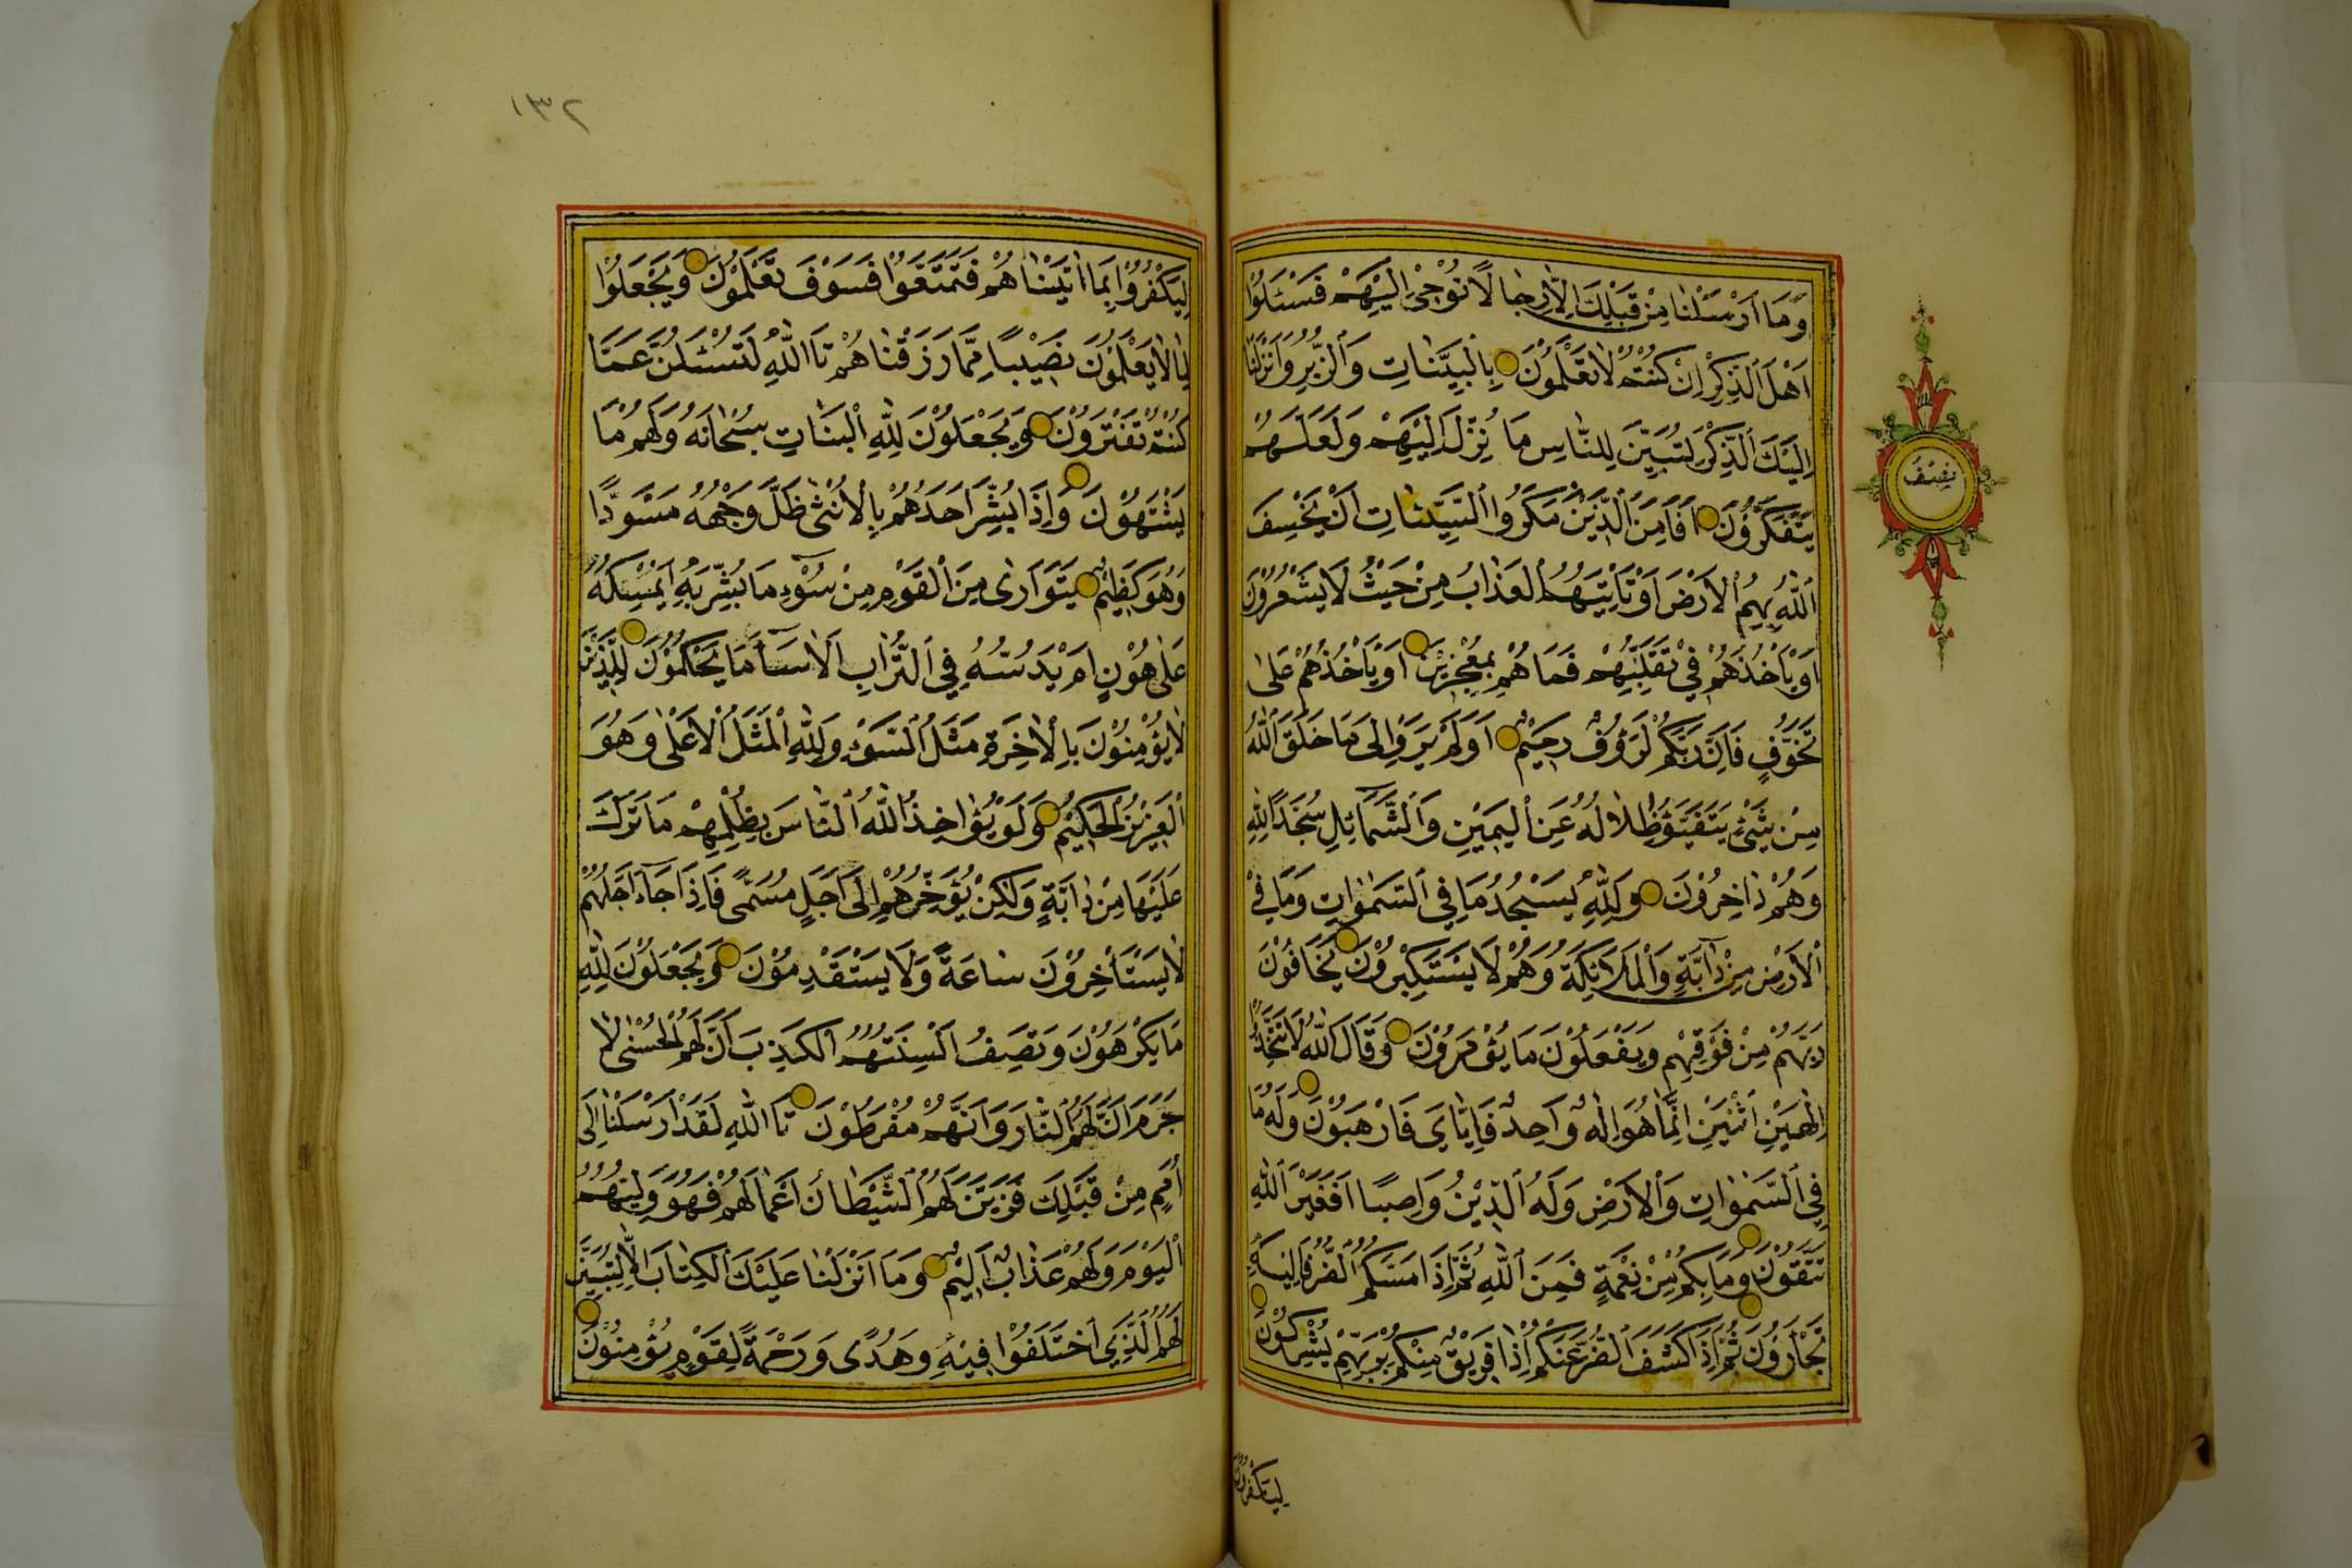 وَمَا اَرْسَلْنَا مِنْ قَبْلِكَ اِلَّا رِجَالًا نُوْحٖى اِلَيْهِمْ فَسْـَٔلُوْا
اَهْلَ الذِّكْرِ اِنْ كُنْتُمْ لَا تَعْلَمُوْنَ بِالْبَيِّنَاتِ وَالزُّبُرِ وَاَنْزَلْنَا
اِلَيْكَ الذِّكْرَ لِتُبَيِّنَ لِلنَّاسِ مَا نُزِّلَ اِلَيْهِمْ وَلَعَلَّهُمْ
يَتَفَكَّرُوْنَ اَفَاَمِنَ الَّذِيْنَ مَكَرُوا السَّيِّئَاتِ اَنْ يَخْسِفَ
اللّٰهُ بِهِمُ الْاَرْضَ اَوْ يَاْتِيَهُمُ الْعَذَابُ مِنْ حَيْثُ لَا يَشْعُرُوْنَ
اَوْ يَاْخُذَهُمْ فِيْ تَقَلُّبِهِمْ فَمَا هُمْ بِمُعْجِزِيْنَ اَوْ يَاْخُذَهُمْ عَلٰى
تَخَوُّفٍ فَاِنَّ رَبَّكُمْ لَرَؤُفٌ رَحِيْمٌ اَوَلَمْ يَرَوْا اِلٰى مَا خَلَقَ اللّٰهُ
مِنْ شَيْءٍ يَتَفَيَّؤُ ظِلَالُهُ عَنِ الْيَمِيْنِ وَالشَّمَائِلِ سُجَّدًا لِلّٰهِ
وَهُمْ دَاخِرُوْنَ وَلِلّٰهِ يَسْجُدُ مَا فِي السَّمٰوَاتِ وَمَا فِي
الْاَرْضِ مِنْ دَابَّةٍ وَالْمَلَائِكَةُ وَهُمْ لَا يَسْتَكْبِرُوْنَ يَخَافُوْنَ
رَبَّهُمْ مِنْ فَوْقِهِمْ وَيَفْعَلُوْنَ مَا يُؤْمَرُوْنَ وَقَالَ اللّٰهُ لَا تَتَّخِذُوْا
اِلٰهَيْنِ اثْنَيْنِ اِنَّمَا هُوَ اِلٰهٌ وَاحِدٌ فَاِيَّايَ فَارْهَبُوْنَ وَلَهُ مَا
فِي السَّمٰوَاتِ وَالْاَرْضِ وَلَهُ الدِّيْنُ وَاصِبًا اَفَغَيْرَ اللّٰهِ
تَتَّقُوْنَ وَمَا بِكُمْ مِنْ نِعْمَةٍ فَمِنَ اللّٰهِ ثُمَّ اِذَا مَسَّكُمُ الضُّرُّ فَاِلَيْهِ
تَجْاَرُوْنَ ثُمَّ اِذَا كَشَفَ الضُّرَّ عَنْكُمْ اِذَا فَرِيْقٌ مِنْكُمْ بِرَبِّهِمْ يُشْرِكُوْنَ
لِيَكْفُرُوْا
نِصْفُ
١٣٢
لِيَكْفُرُوْا بِمَا اٰتَيْنَاهُمْ فَتَمَتَّعُوْا فَسَوْفَ تَعْلَمُوْنَ وَيَجْعَلُوْنَ
لِمَا لَا يَعْلَمُوْنَ نَصِيْبًا مِمَّا رَزَقْنَاهُمْ تَاللّٰهِ لَتُسْـَٔلُنَّ عَمَّا
كُنْتُمْ تَفْتَرُوْنَ وَيَجْعَلُوْنَ لِلّٰهِ الْبَنَاتِ سُبْحَانَهُ وَلَهُمْ مَا
يَشْتَهُوْنَ وَاِذَا بُشِّرَ اَحَدُهُمْ بِالْاُنْثٰى ظَلَّ وَجْهُهُ مُسْوَدًّا
وَهُوَ كَظِيْمٌ يَتَوَارٰى مِنَ الْقَوْمِ مِنْ سُوْءِ مَا بُشِّرَ بِهِ اَيُمْسِكُهُ
عَلٰى هُوْنٍ اَمْ يَدُسُّهُ فِي التُّرَابِ اَلَا سَاءَ مَا يَحْكُمُوْنَ لِلَّذِيْنَ
لَا يُؤْمِنُوْنَ بِالْاٰخِرَةِ مَثَلُ السَّوْءِ وَلِلّٰهِ الْمَثَلُ الْاَعْلٰى وَهُوَ
الْعَزِيْزُ الْحَكِيْمُ وَلَوْ يُؤَاخِذُ اللّٰهُ النَّاسَ بِظُلْمِهِمْ مَا تَرَكَ
عَلَيْهَا مِنْ دَابَّةٍ وَلٰكِنْ يُؤَخِّرُهُمْ اِلٰى اَجَلٍ مُسَمًّى فَاِذَا جَاءَ اَجَلُهُمْ
لَا يَسْتَاْخِرُوْنَ سَاعَةً وَلَا يَسْتَقْدِمُوْنَ وَيَجْعَلُوْنَ لِلّٰهِ
مَا يَكْرَهُوْنَ وَتَصِفُ اَلْسِنَتُهُمُ الْكَذِبَ اَنَّ لَهُمُ الْحُسْنٰى لَا
جَرَمَ اَنَّ لَهُمُ النَّارَ وَاَنَّهُمْ مُفْرَطُوْنَ تَاللّٰهِ لَقَدْ اَرْسَلْنَا اِلٰى
اُمَمٍ مِنْ قَبْلِكَ فَزَيَّنَ لَهُمُ الشَّيْطَانُ اَعْمَالَهُمْ فَهُوَ وَلِيُّهُمُ
الْيَوْمَ وَلَهُمْ عَذَابٌ اَلِيْمٌ وَمَا اَنْزَلْنَا عَلَيْكَ الْكِتَابَ اِلَّا لِتُبَيِّنَ
لَهُمُ الَّذِي اخْتَلَفُوْا فِيْهِ وَهُدًى وَرَحْمَةً لِقَوْمٍ يُؤْمِنُوْنَ